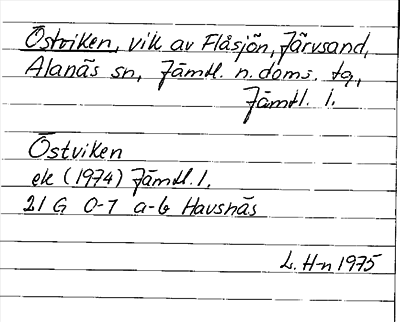 Östviken, vik av Flåsjön, Järvsand,
Alanäs sn, Jämtl. n. doms. tg,
Jämtl. l.
Östviken
ek (1974) Jämtl. l.
21 G 0-7 a-b Havsnäs
L. H-n 1975